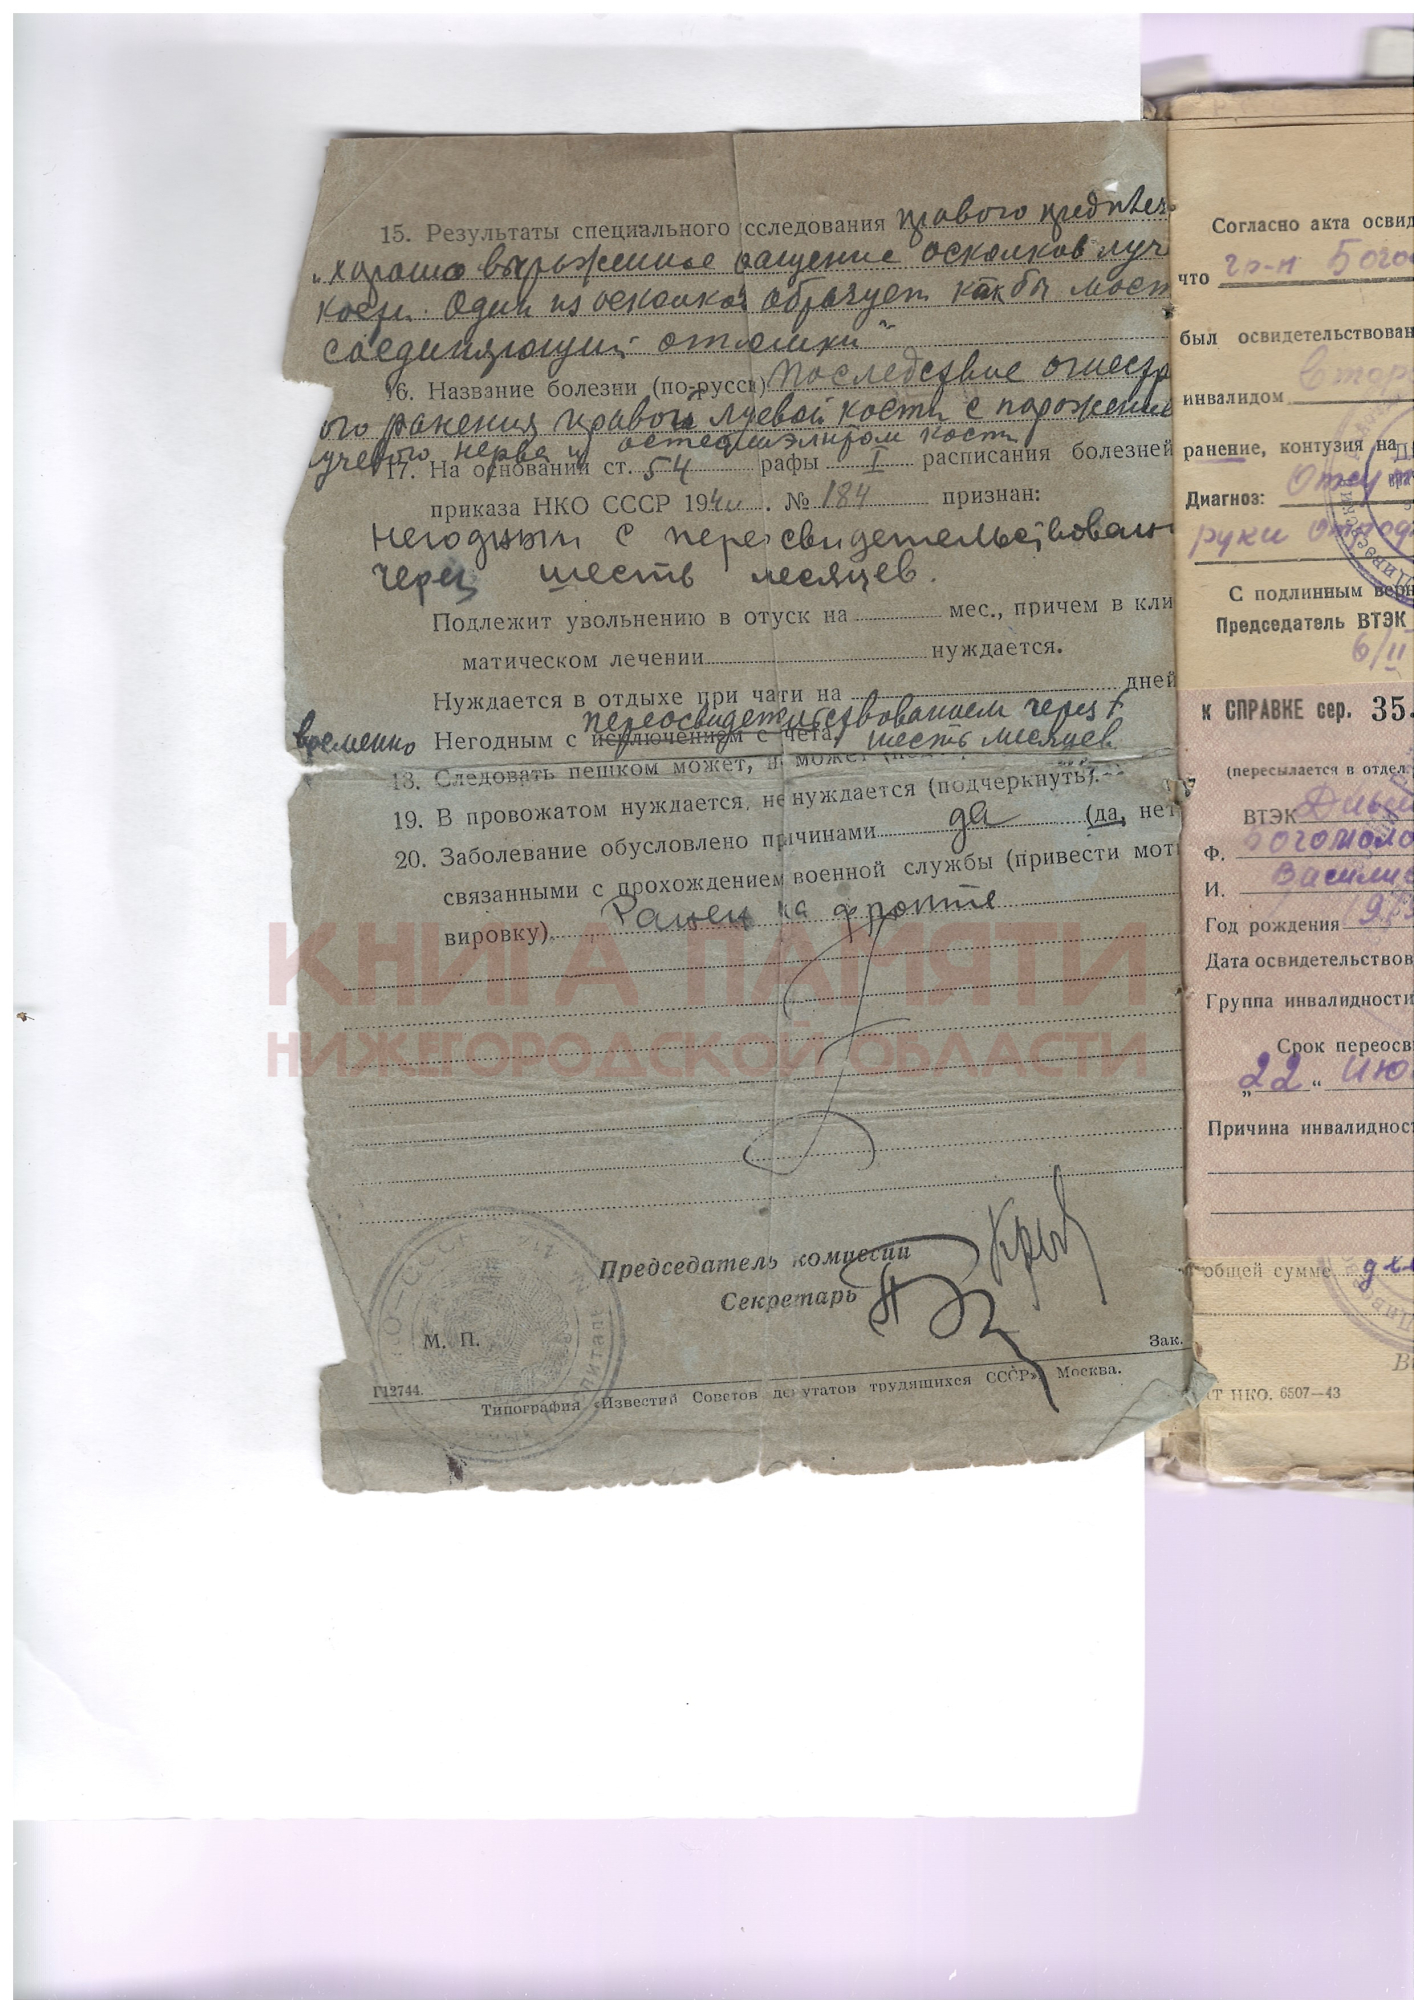 15. Результаты специального сследования правого предплеч
„хорошо выраженное ращение осколков луче
кости. Один из осколков образует как бы мост
соединяющий отломки“
16. Название болезни (по-русск) Последствие огнестр
ого ранения правой лучевой кости с поражением
лучевого нерва и остеомиэлитом кости
17. На основании ст. 54 рафы I расписания болезней
приказа НКО СССР 194 . № 184 признан:
Негодным с переосвидетельствовани
через шесть месяцев.
Подлежит увольнению в отуск на мес., причем в кли
матическом лечении нуждается.
Нуждается в отдыхе при чати на дней
переосвидетельствованием через
временно Негодным с исключением с чета, шесть месяцев
18. Следовать пешком может, н может
19. В провожатом нуждается, не нуждается (подчеркнуть).
20. Заболевание обусловлено причинами да (да, нет
связанными с прохождением военной службы (привести моти
вировку) Ранен на фронте
КНИГА ПАМЯТИ
НИЖЕГОРОДСКОЙ ОБЛАСТИ
Председатель комиссии
Секретарь
М. П.
Зак.
Г12744.
Типография «Известий Советов депутатов трудящихся СССР», Москва.
Согласно акта освид
что гр-н Бого
был освидетельствован
инвалидом Втор
ранение, контузия на
Диагноз: Отсут
руки
С подлинным верн
Председатель ВТЭК
6/II
К СПРАВКЕ сер. 35.
(пересылается в отдел
ВТЭК Дивее
Ф. Богомоло
И. Василие
Год рождения 19
Дата освидетельствов
Группа инвалидности
Срок переосви
„22“ Ию
Причина инвалидност
общей сумме
Т НКО. 6507—43